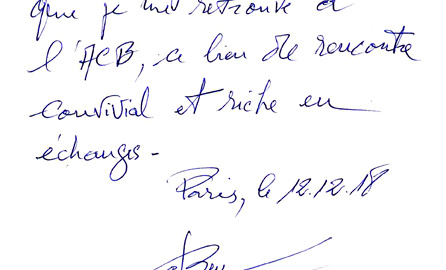 que je me retrouve à
l'ACB, ce lieu de rencontre
convivial et riche en
échanges -
Paris, le 12.12.18